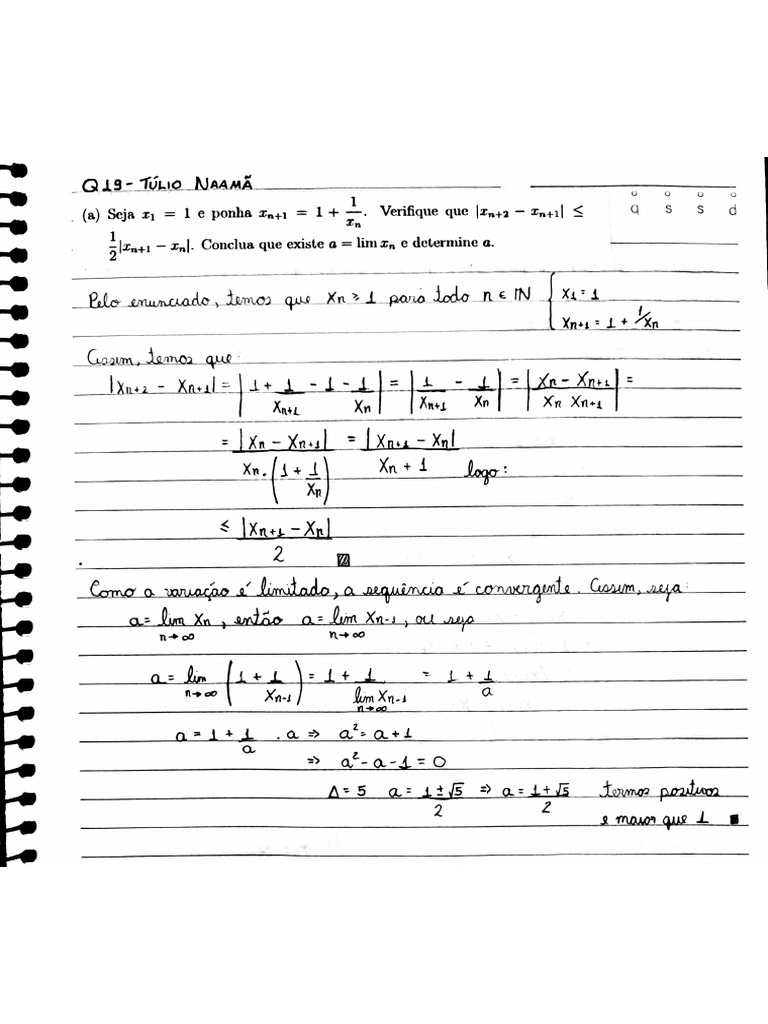 Q19 - TÚLIO NAAMÃ
q s s d
(a) Seja x₁ = 1 e ponha xₙ₊₁ = 1 + 1/xₙ. Verifique que |xₙ₊₂ − xₙ₊₁| ≤
1/2|xₙ₊₁ − xₙ|. Conclua que existe a = lim xₙ e determine a.
Pelo enunciado, temos que Xn ≥ 1 para todo n ∈ IN { X₁ = 1
Xn+1 = 1 + 1/Xn
Assim, temos que:
|Xn+2 − Xn+1| = |1 + 1/Xn+1 − 1 − 1/Xn| = |1/Xn+1 − 1/Xn| = |Xn − Xn+1 / Xn Xn+1| =
= |Xn − Xn+1| / Xn.(1 + 1/Xn) = |Xn+1 − Xn| / Xn + 1 logo:
≤ |Xn+1 − Xn| / 2
Como a variação é limitado, a sequência é convergente. Assim, seja:
a = lim Xn n→∞, então a = lim Xn-1 n→∞, ou seja
a = lim n→∞ (1 + 1/Xn-1) = 1 + 1/lim Xn-1 n→∞ = 1 + 1/a
a = 1 + 1/a . a ⇒ a² = a + 1
⇒ a² − a − 1 = 0
Δ = 5 a = 1 ± √5 / 2 ⇒ a = 1 + √5 / 2 termos positivos
e maior que 1 ■